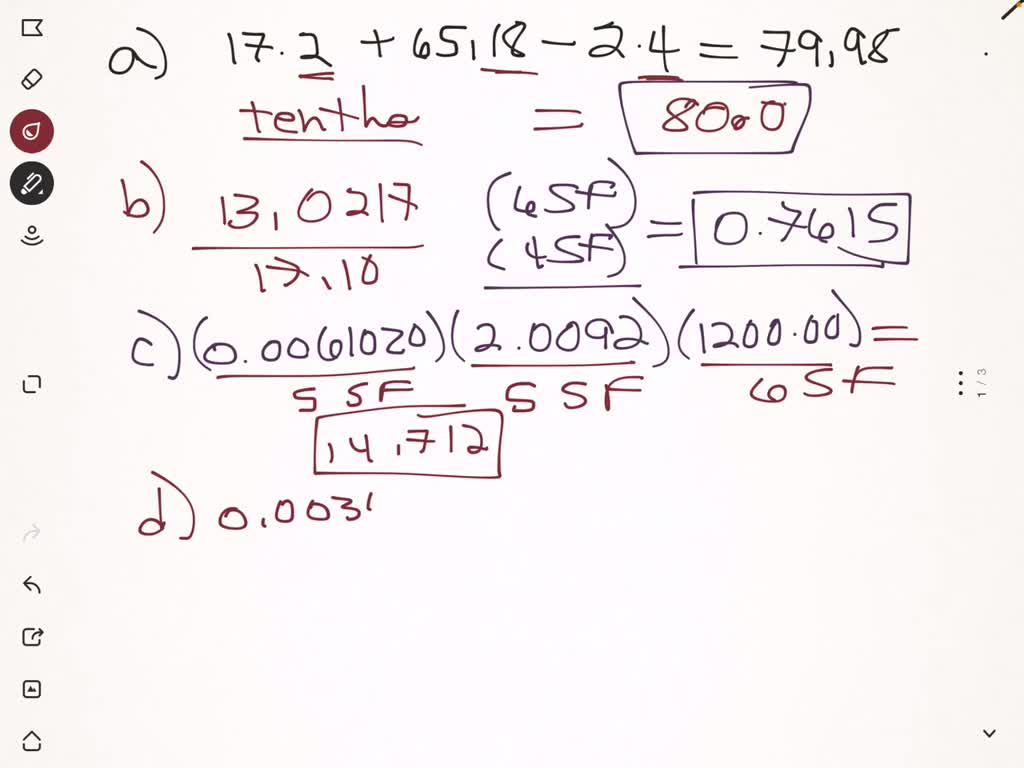 a) 17.2 + 65.18 - 2.4 = 79.98
tenths = 80.0
b) 13.0217 (6SF)
17.10 (4SF) = 0.7615
c) (0.0061020)(2.0092)(1200.00) =
5 SF 5 SF 6 SF
14.712
d) 0.003
1 / 3